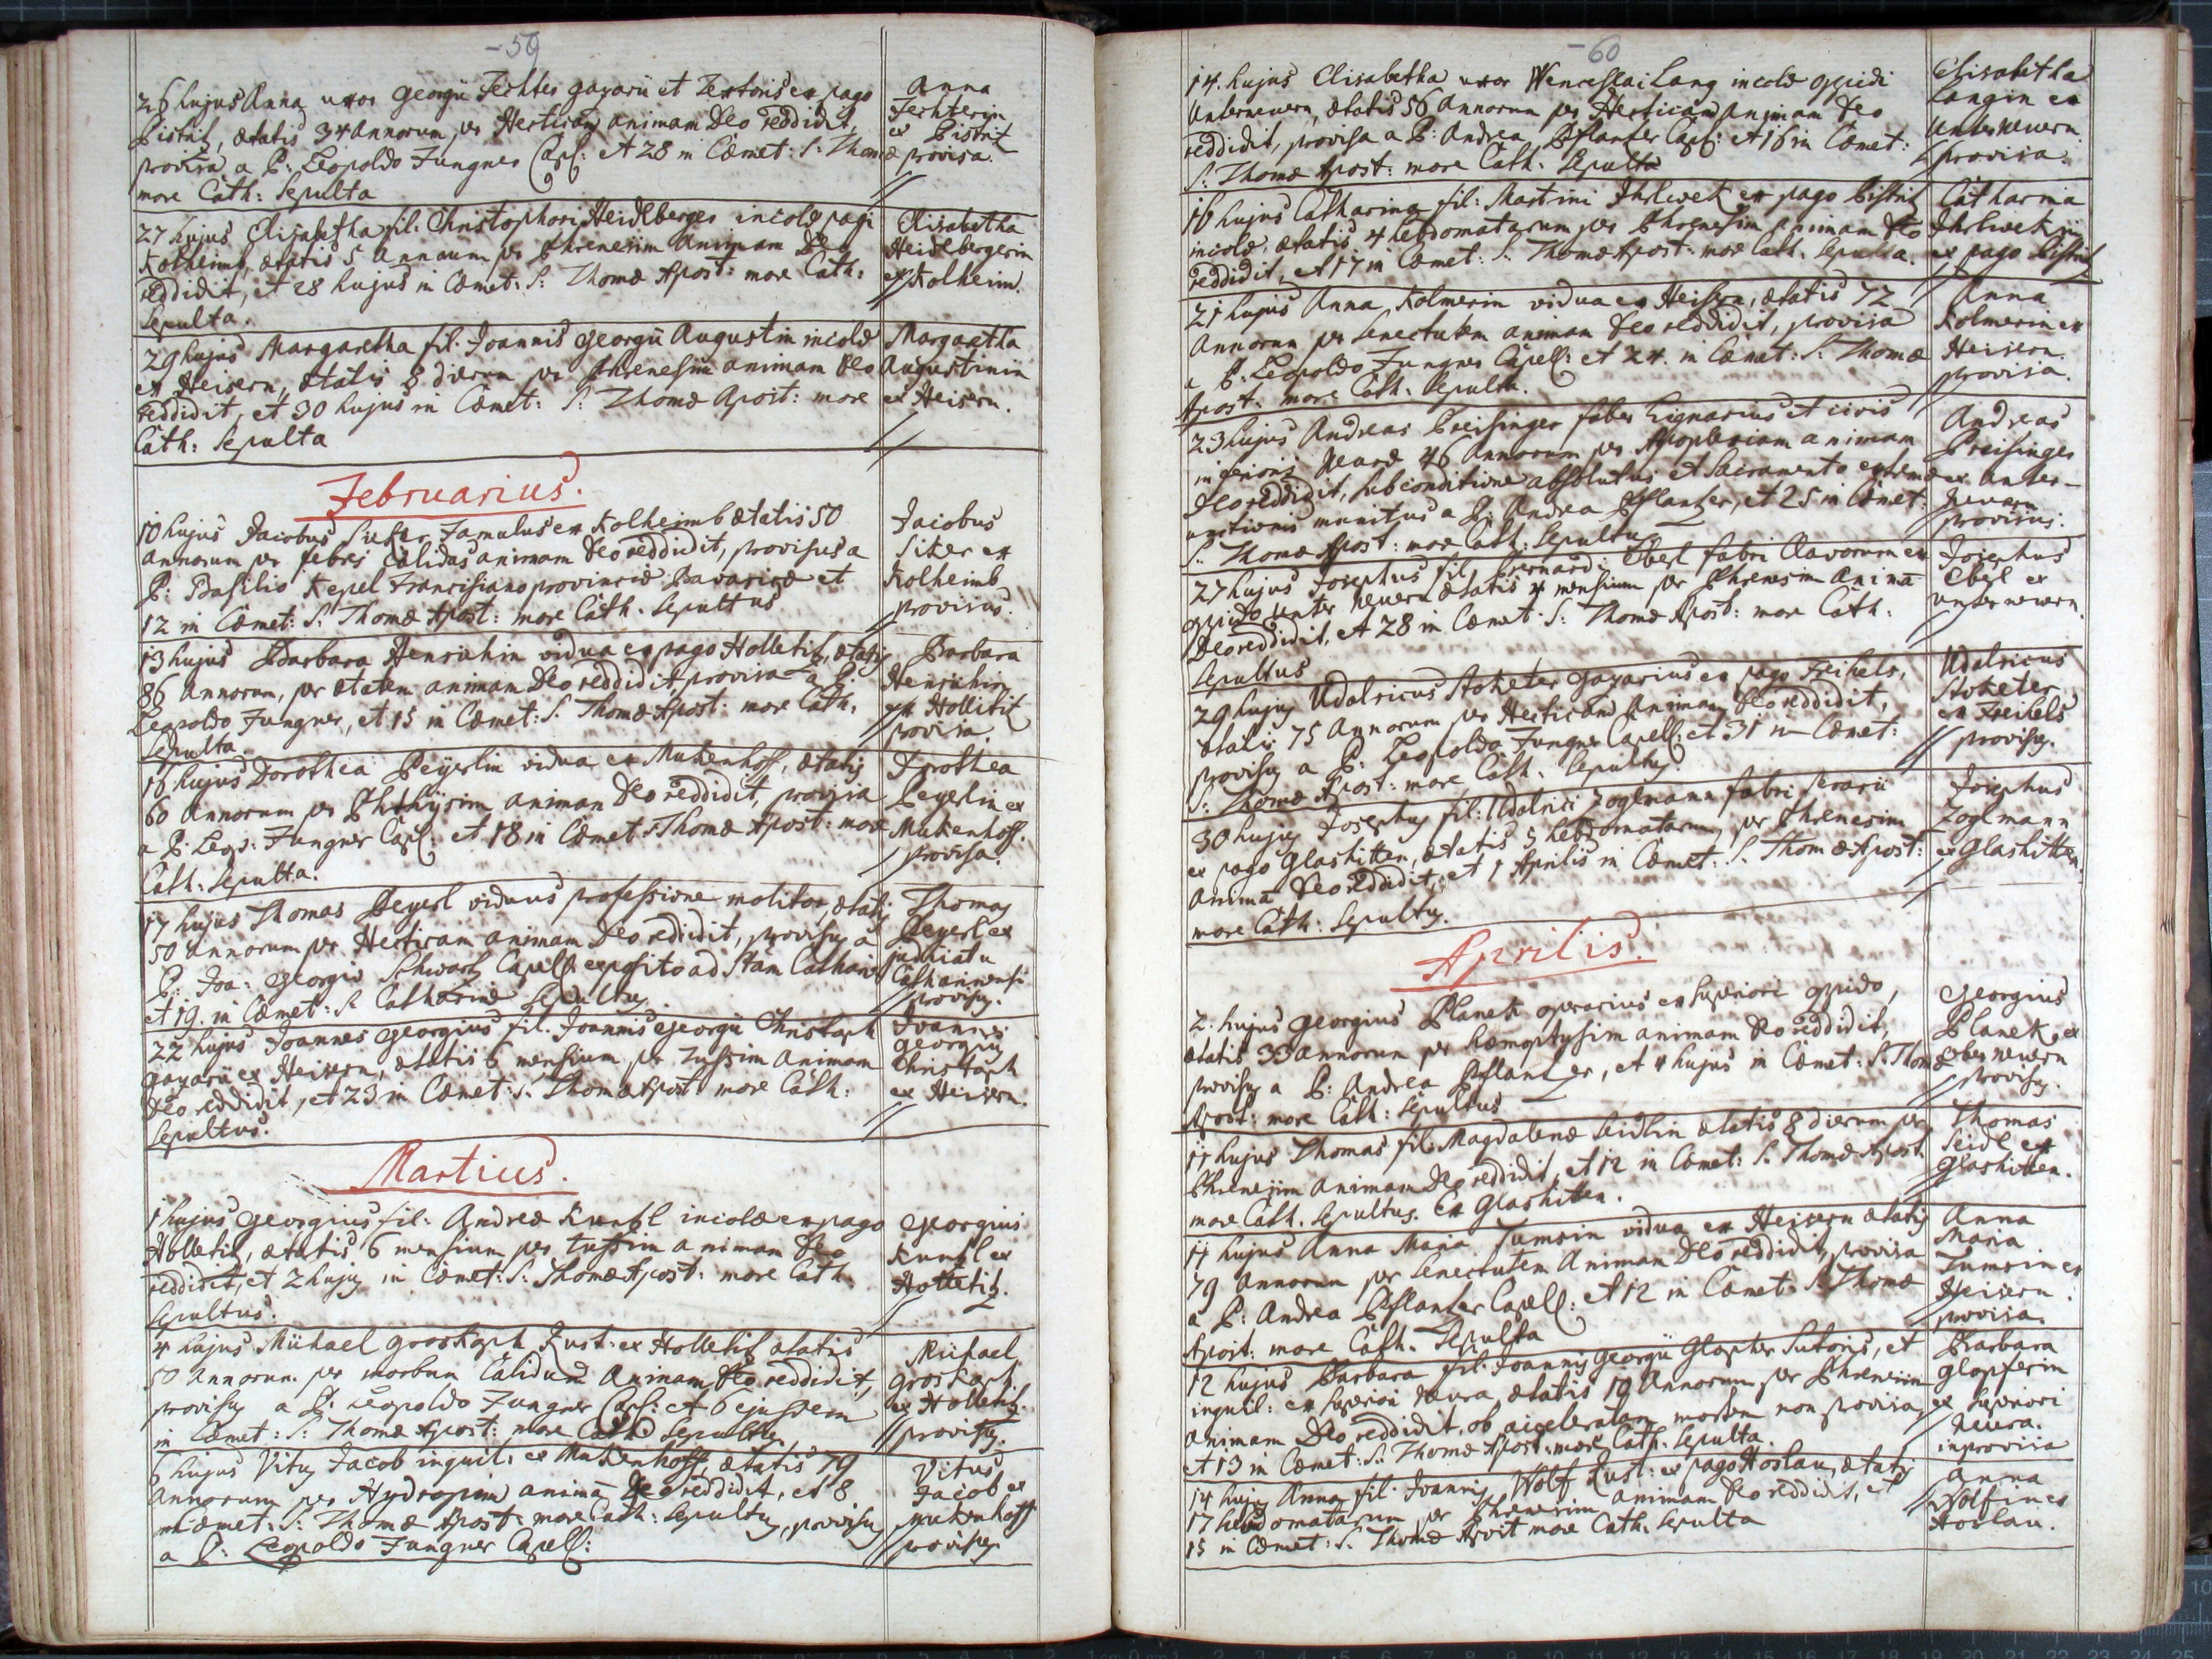 - 59
26 hujus Anna uxor Georgii Fechter gazarii et Textoris ex pago
Bistriz, ætatis 34 annorum per Hecticam animam Deo reddidit,
provisa a P: Leopoldo Jungner Capl: et 28 in Cæmet: S: Thomæ
more Cath: Sepulta
Anna
Fechterin
ex Bistriz
provisa.
27 hujus Elisabetha fil: Christophori Heidlberger incolæ pagi
Kolheimb, ætatis 5 Annorum per Phrenesim Animam Deo
reddidit, et 28 hujus in Cæmet: S: Thomæ Apost: more Cath:
Sepulta.
Elisabetha
Heidlbergerin
ex Kolheim.
29 hujus Margaretha fil. Joannis Georgii Augustin incolæ
ex Heisern, ætatis 8 dierum per Phrenesim animam Deo
reddidit, et 30 hujus in Cæmet: S: Thomæ Apost: more
Cath: Sepulta
Margaretha
Augustinin
ex Heisern.
Februarius.
10 hujus Jacobus Siker Famulus ex Kolheimb ætatis 50
annorum per febres Calidas animam Deo reddidit, provisus a
P: Basilio Kepel Franciscano provinciæ Bavaricæ et
12 in Cæmet: S: Thomæ Apost: more Cath. Sepultus
Jacobus
Siker ex
Kolheimb
provisus.
13 hujus Barbara Henrichin vidua ex pago Holletiz, ætatis
86 annorum, per ætatem animam Deo reddidit, provisa a P:
Leopoldo Jungner, et 15 in Cæmet: S: Thomæ Apost: more Cath:
Sepulta.
Barbara
Henrichin
ex Hollitiz
provisa.
16 hujus Dorothea Peyerlin vidua ex Mukenhoff, ætatis
60 Annorum per Phthysim animam Deo reddidit, provisa
a P: Leop: Jungner Capl: et 18 in Cæmet: S: Thomæ Apost: more
Cath: Sepulta.
Dorothea
Peyerlin ex
Mukenhoff.
provisa.
17 hujus Thomas Peyerl viduus professione molitor, ætatis
50 annorum per Hecticam animam Deo reddidit, provisus a
P: Joa: Georgio Schwartz Capell: exposito ad Stam Catharinæ
et 19. in Cæmet: S: Catharinæ Sepultus
Thomas
Peyerl ex
judicatu
Catharinensi
provisus.
22 hujus Joannes Georgius fil. Joannis Georgii Christoph
gazarii ex Heisern, ætatis 6 mensium per tussim Animam
Deo reddidit, et 23 in Cæmet: S: Thomæ Apost more Cath:
Sepultus.
Joannes
Georgius
Christoph
ex Heisern.
Martius.
1 hujus Georgius fil: Andreæ Kuntzl incolæ ex pago
Holletiz, ætatis 6 mensium per tussim animam Deo
reddidit, et 2 hujus in Cæmet: S: Thomæ Apost: more Cath
Sepultus.
Georgius
Kuntzl ex
Holletiz.
4 hujus Michael Groskoph Rust: ex Holletiz ætatis
50 Annorum per morbum Calidum Animam Deo reddidit,
provisus a P: Leopoldo Jungner Capl: et 6 ejusdem
in Cæmet: S: Thomæ Apost: more Cath Sepultus
Michael
Groskoph
ex Holletiz.
provisus.
6 hujus Vitus Jacob inquil: ex Mukenhoff, ætatis 79
annorum per Hydropim animã Deo reddidit, et 8
in Cæmet: S: Thomæ Apost: more Cath: Sepultus, provisus
a P: Leopoldo Jungner Capell:
Vitus
Jacob ex
Mukenhoff
provisus
- 60
14. hujus Elisabetha uxor Wenceslai Lang incolæ oppidi
Unterneuern, ætatis 56 Annorum per Hecticam Animam Deo
reddidit, provisa a P: Andrea Pflantzer Capl: et 16 in Cæmet:
S: Thomæ Apost: more Cath: Sepulta
Elisabetha
Langin ex
Unterneuern
provisa.
16 hujus Catharina fil: Martini Ihrlwek ex pago Bistriz
incolæ. ætatis 4 hebdomatarum per Phrenesim animam Deo
reddidit, et 17 in Cæmet: S: Thomæ Apost: more Cath. Sepulta.
Catharina
Ihrlwekin
ex pago Bistriz
21 hujus Anna Kolmerin vidua ex Heisern, ætatis 72
Annorum per Senectutem animam Deo reddidit, provisa
a P: Leopoldo Jungner Capell: et 24. in Cæmet: S: Thomæ
Apost: more Cath: Sepulta.
Anna
Kolmerin ex
Heisern.
provisa.
23 hujus Andreas Preisinger faber Lignarius et civis
inferioris Neuræ 46 Annorum per Apoplexiam animam
Deo reddidit, sub conditione absolutus et Sacramento extremæ
unctionis munitus a P: Andrea Pflantzer, et 25 in Cæmet:
S: Thomæ Apost: more Cath: Sepultus
Andreas
Preisinger
ex Unter-
Neuern
provisus.
27 hujus Josephus fil: Bernardi Eberl fabri Clavorum ex
oppido unter Neuern ætatis 4 mensium per Phrenesim Animã
Deo reddidit, et 28 in Cæmet: S: Thomæ Apost: more Cath:
Sepultus
Josephus
Eberl ex
unter neuern.
29 hujus Udalricus Stoketer gazarius ex pago Freihels,
ætatis 75 Annorum per Hecticam Animam Deo reddidit,
provisus a P: Leopoldo Jungner Capell: et 31 in Cæmet:
S: Thomæ Apost: more Cath: Sepultus
Udalricus
Stoketer
ex Freihels
provisus.
30 hujus Josephus fil: Udalrici Zoglmann fabri ferarii
ex pago Glashitten, ætatis 5 hebdomatarum, per Phrenesim
Animã Deo reddidit, et 1 Aprilis in Cæmet: S: Thomæ Apost:
more Cath: Sepultus.
Josephus
Zoglmann
ex Glashitten
Aprilis.
2. hujus Georgius Planek operarius ex Superiori oppido,
ætatis 33 annorum per hæmoptysim animam Deo reddidit,
provisus a P: Andrea Pflantzer, et 4 hujus in Cæmet: S: Thomæ
Apost: more Cath: Sepultus
Georgius
Planek ex
oberneuern
provisus.
11 hujus Thomas fil: Magdalenæ Seidlin ætatis 8 dierum per
Phrenesim animam Deo reddidit, et 12 in Cæmet: S. Thomæ Apost
more Cath. Sepultus. Ex Glashitten.
Thomas
Seidl ex
Glashitten.
11 hujus Anna Maria Tumsin vidua ex Heisern ætatis
79 annorum per Senectutem Animam Deo reddidit, provisa
a P: Andrea Pflantzer Capell: et 12 in Cæmet: S: Thomæ
Apost: more Cath. Sepulta
Anna
Maria
Tumsin ex
Heisern.
provisa.
12 hujus Barbara fil. Joannis Georgii Glopfer Sutoris, et
inquil: ex Superiori Neura, ætatis 19 Annorum per Phrenesim
Animam Deo reddidit, ob acceleratam mortem non provisa,
et 13 in Cæmet: S: Thomæ Apost: more Cath. Sepulta.
Barbara
Glopferin
ex Superiori
Neura.
inprovisa
14 hujus Anna fil. Joannis Wolf Rust: ex pago Hoslau, ætatis
17 hebdomatarum per Phrenesim animam Deo reddidit, et
15 in Cæmet: S. Thomæ Apost more Cath. Sepulta
Anna
Wolfin ex
Hoslau.